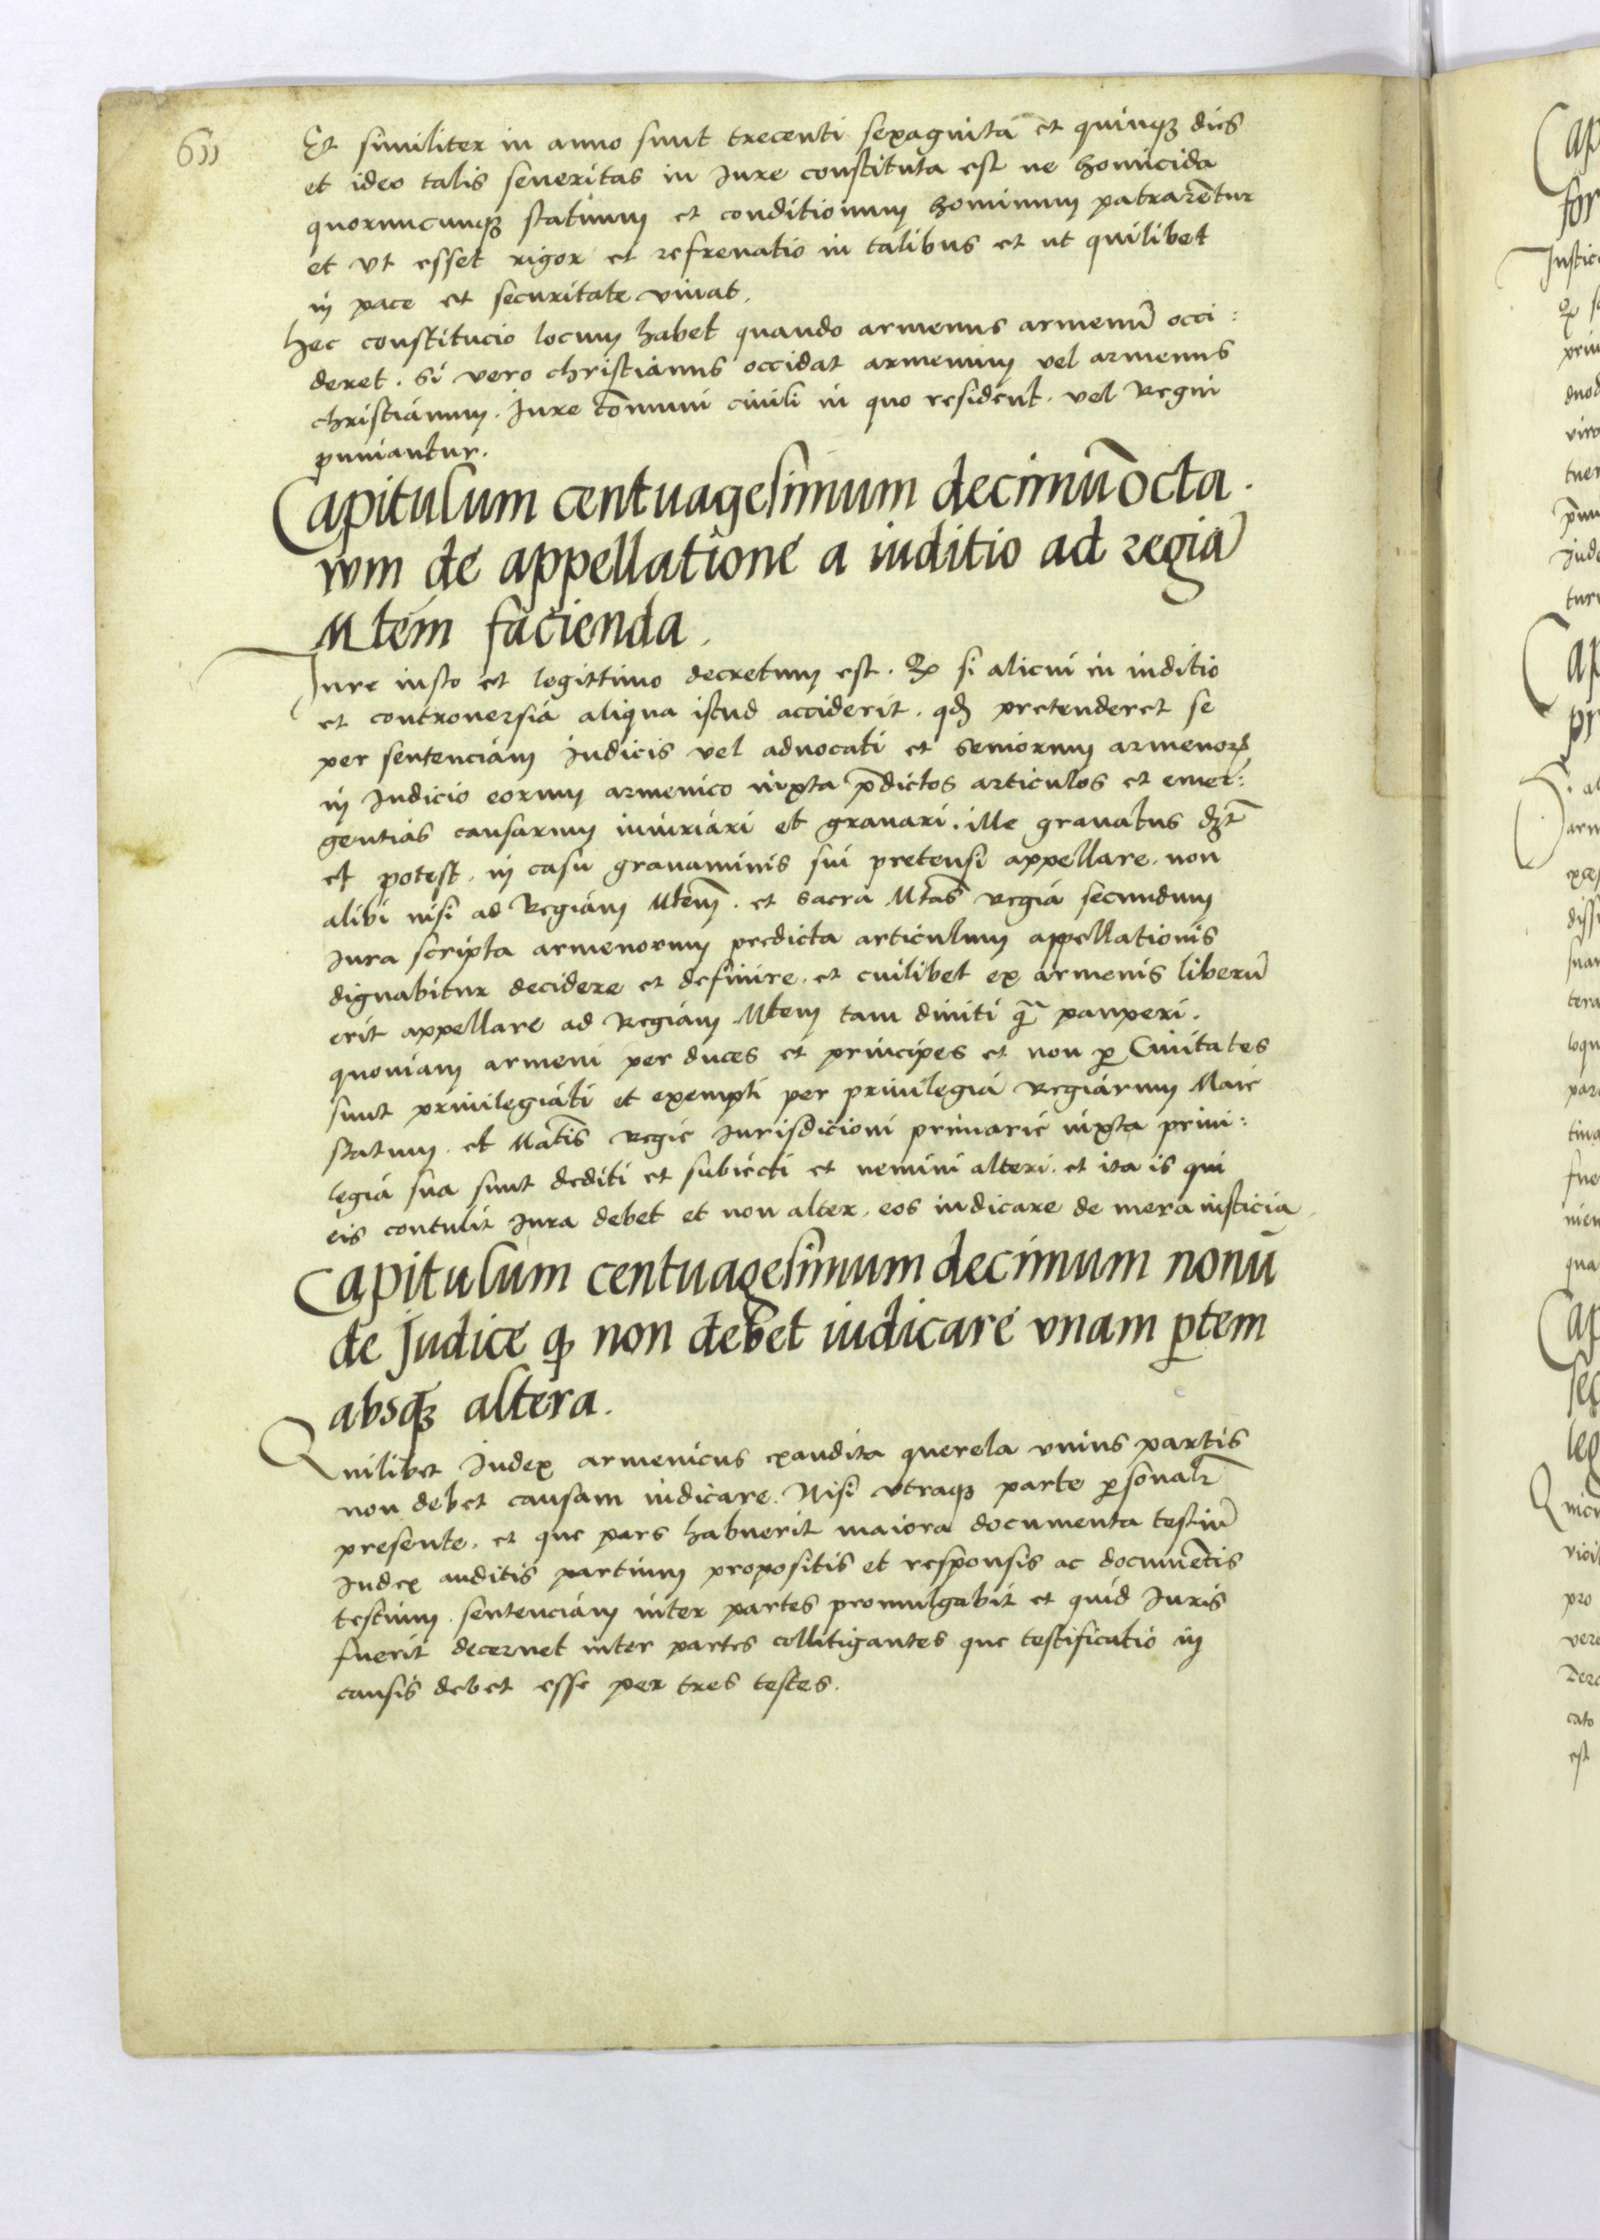 611
Et similiter in anno sunt trecenti sexaginta et quinqꝫ dies
et ideo talis seueritas in Jure constituta est ne homicida
quorumcunqꝫ statuum et conditionum hominum patrarẽtur
et vt esset rigor et refrenatio in talibus et ut quilibet
in pace et securitate viuat.
Hec constitucio locum habet quando armenus armenũ occi:
deret. Si vero christianus occidat armenum vel armenus
christianum. Jure cõmuni ciuili in quo resident. vel Regni
puniantur.
Capitulum centuagesimum decimũ octa
vum de appellatione a iuditio ad regiã
Mtem facienda.
Jure iusto et legittimo decretum est. Qꝫ si alicui in iuditio
et controuersia aliqua istud acciderit. qđ pretenderet se
per sentenciam Judicis vel aduocati et seniorum armenoꝝ
in Judicio eorum armenico iuxta p̃dictos articulos et emer:
gentias causarum iniuriari et grauari. ille grauatus dꝫt
et potest. in casu grauaminis sui pretensi appellare. non
alibi nisi ad Regiam Mtem̃. et sacra Mtas̃ regia secundum
Jura scripta armenorum predicta articulum appellationis
dignabitur decidere et definire. et cuilibet ex armenis liberũ
erit appellare ad Regiam Mtem tam diuiti q̃ pauperi.
quoniam armeni per duces et principes et non ꝑ Ciuitates
sunt priuilegiati et exempti per priuilegia Regiarum Maie
statum. et Matis̃ regie Jurisdicioni primarie iuxta priui:
legia sua sunt dediti et subiecti et nemini alteri. et ita is qui
eis contulit Jura debet et non alter. eos iudicare de mera iusticia.
Capitulum centuagesimum decimum nonũ
de Judice qꝫ non debet iudicare vnam ꝑtem
absqꝫ altera.
Quilibet Judex armenicus exaudita querela vnius partis
non debet causam iudicare. Nisi vtraqꝫ parte ꝑsonalr̃
presente. et que pars habuerit maiora documenta testiũ
Judex auditis partium propositis et responsis ac documẽtis
testium. sentenciam inter partes promulgabit et quid Juris
fuerit decernet inter partes collitigantes que testificatio in
causis debet esse per tres testes.